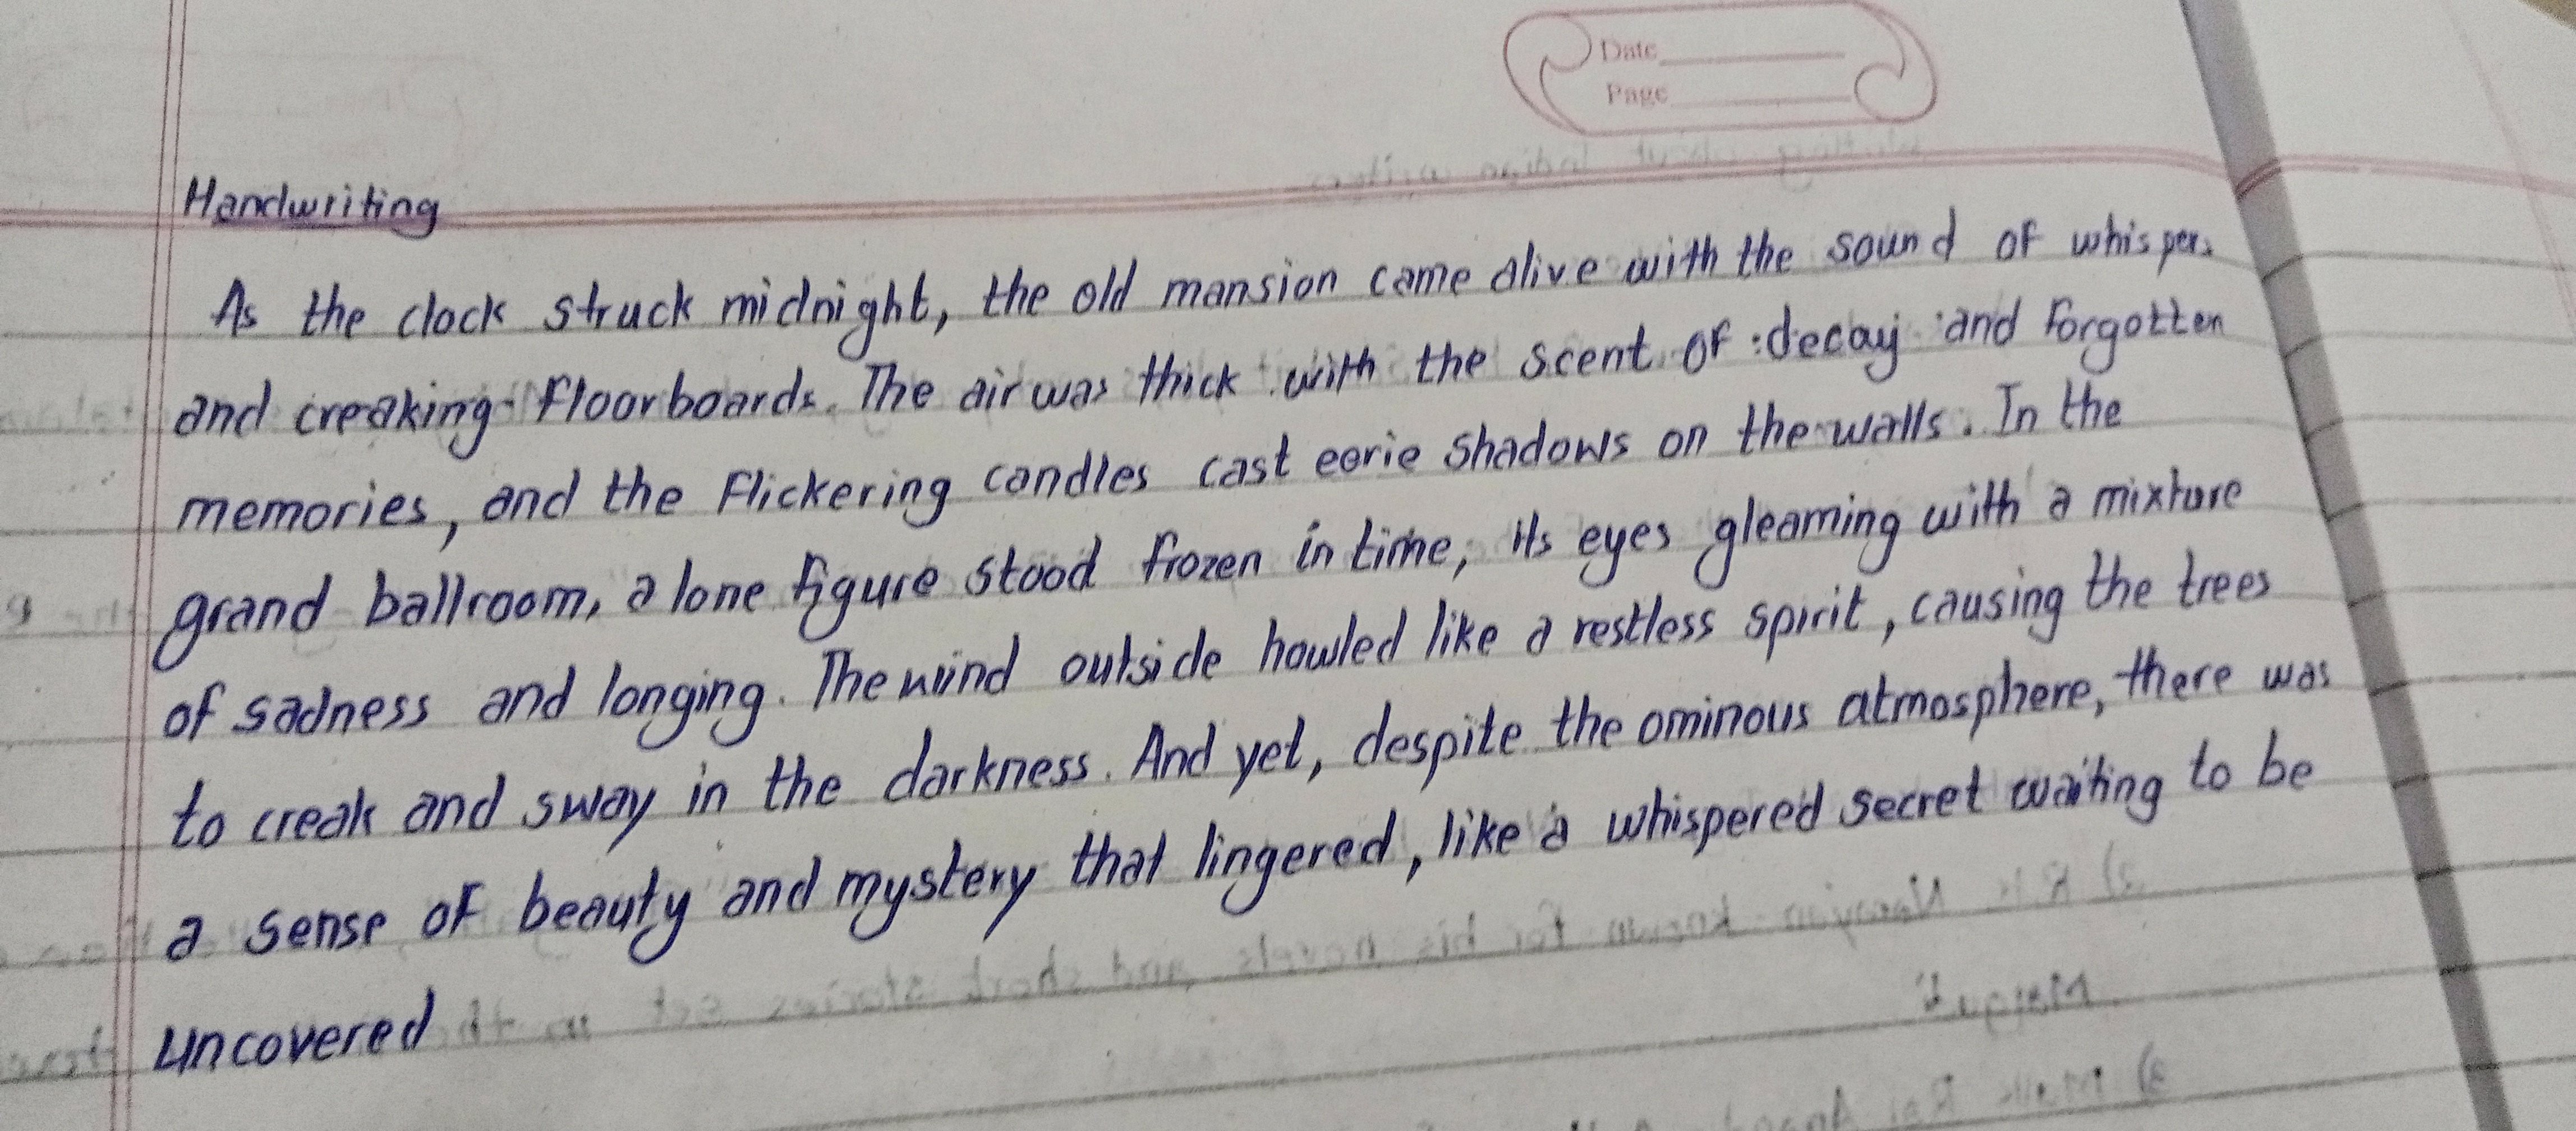 Date
Page
Handwriting
As the clock struck midnight, the old mansion came alive with the sound of whispers
and creaking floorboards. The air was thick with the scent of decay and forgotten
memories, and the flickering candles cast eerie shadows on the walls. In the
grand ballroom, a lone figure stood frozen in time, its eyes gleaming with a mixture
of sadness and longing. The wind outside howled like a restless spirit, causing the trees
to creak and sway in the darkness. And yet, despite the ominous atmosphere, there was
a sense of beauty and mystery that lingered, like a whispered secret waiting to be
uncovered